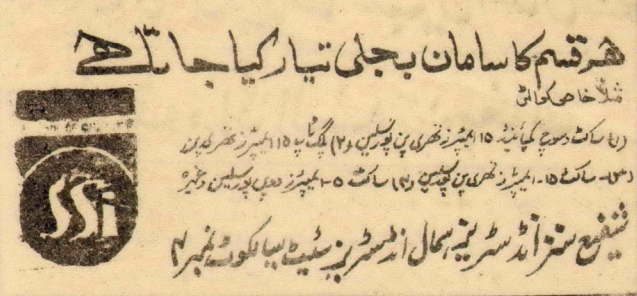 ھر قسم کا سامان بجلی تیار کیا جاتا ھے
مثلاً خاص کوالٹی
(۱) ساکٹ و سوچ کمبائنڈ ۱۵ ایمپئرز تھری پن پورسلین (۲) پلگ ٹاپ ۱۵ ایمپئرز تھری پن
(۳) ساکٹ ۱۵-ایمپئرز تھری پن پورسلین (۴) ساکٹ ۵-ایمپئرز پورسلین وغیرہ
SSi
شفیع سنز انڈسٹریز سمال انڈسٹریز سٹیٹ سیالکوٹ نمبر ۴